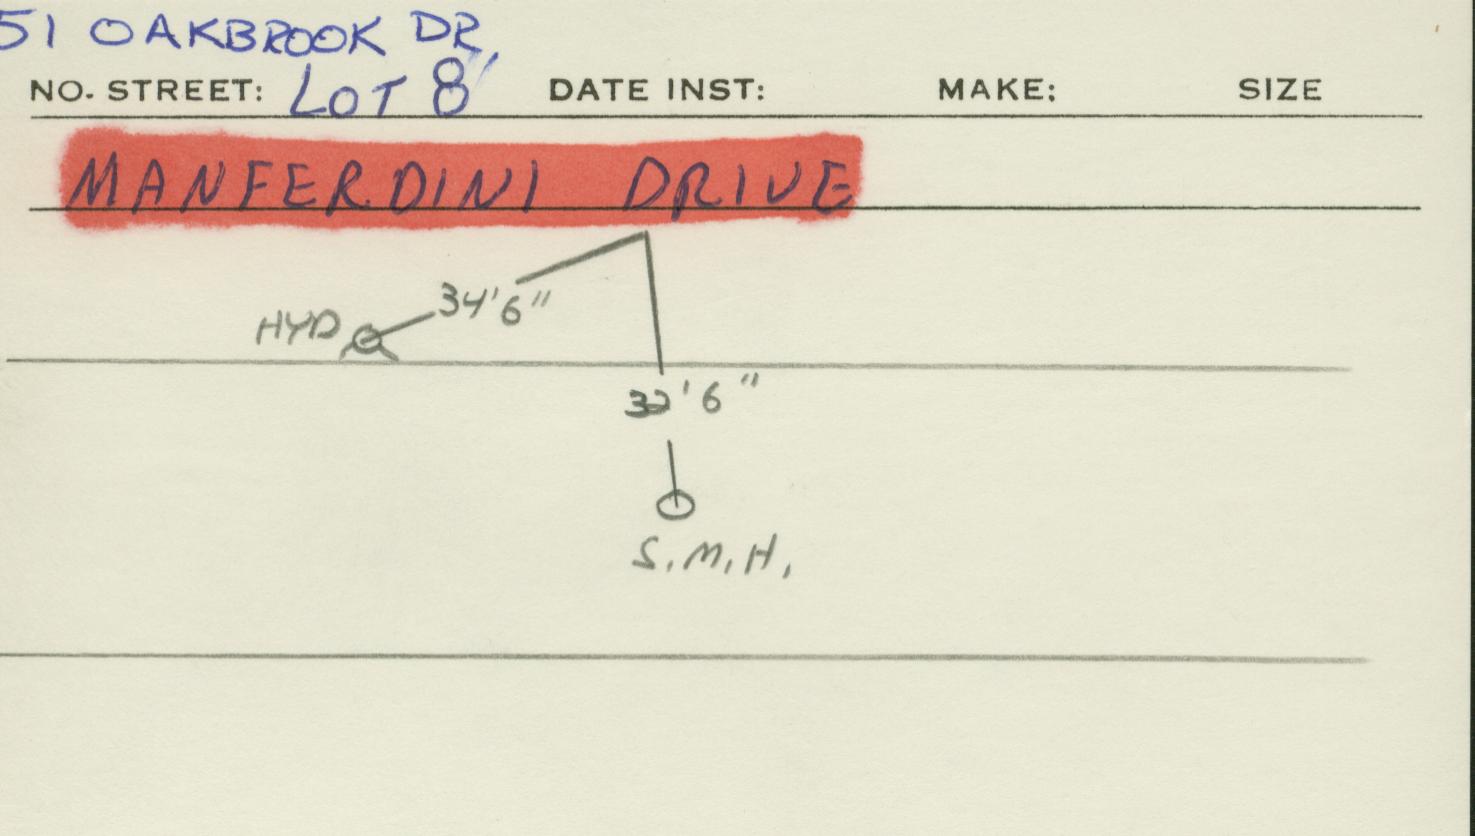 51 OAKBROOK DR,
NO. STREET: LOT 8 DATE INST: MAKE: SIZE
MANFERDINI DRIVE
34'6"
HYD
32'6"
S.M.H.